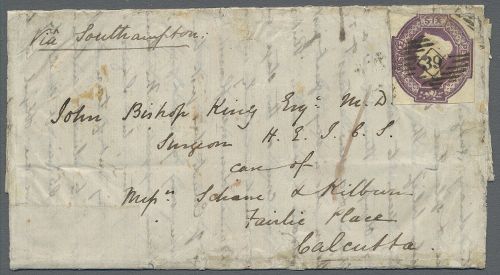 Viâ Southampton.
SIX
39
John Bishop King Esqr. M.D.
Surgeon H. E. I. C. S.
care of
Messrs & Kilburn
Fairlie Place
Calcutta.